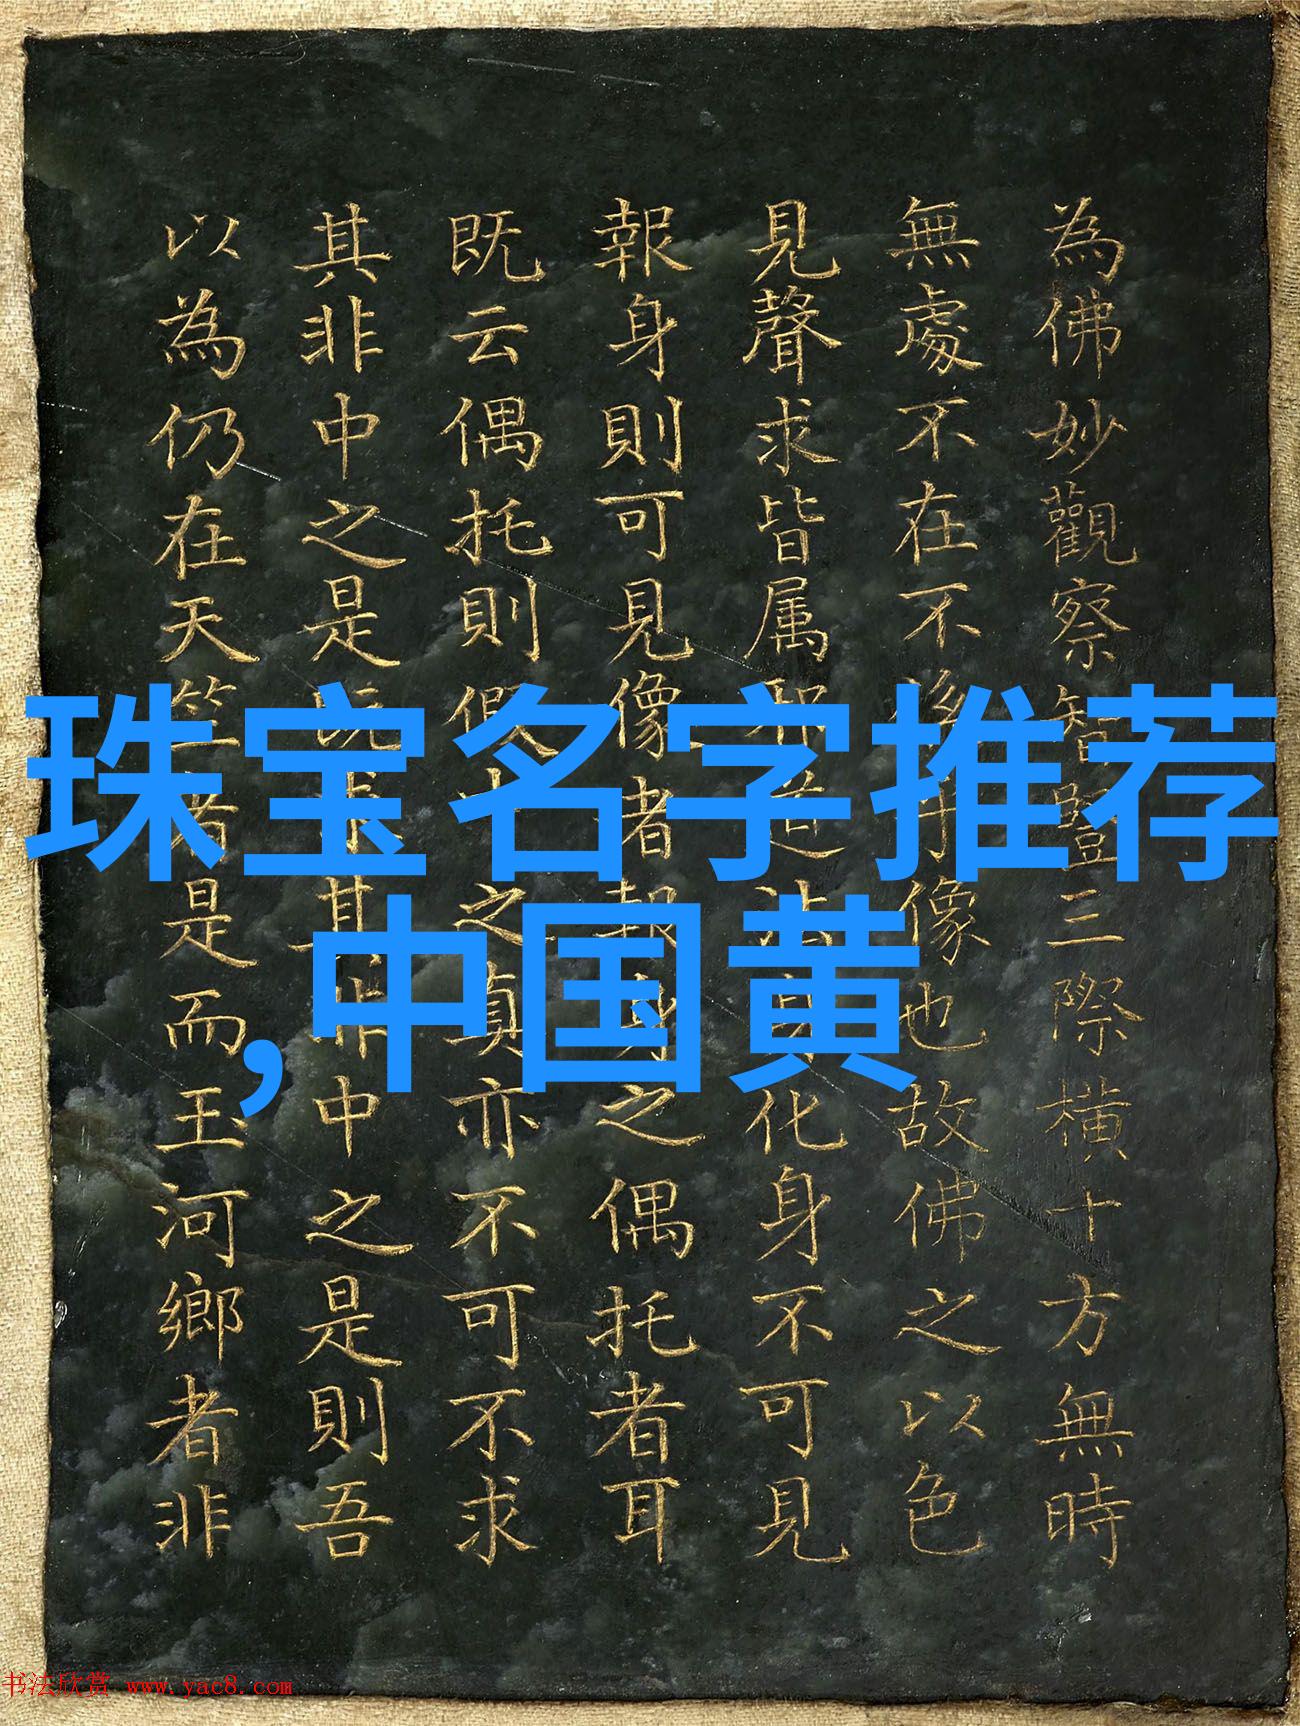 為佛妙觀察智豎三際橫十方無時
無處不在不像也故佛之以色
見聲求皆属邪道法身化身不可見
報身則可見像者報身之偶托者耳
既云偶托則假之真亦不可不求
其非中之是既求其非中之是則吾
以為仍在天竺者是而玉河鄉者非
珠宝名字推荐
,中国黄
书法欣赏 www.yac8.com